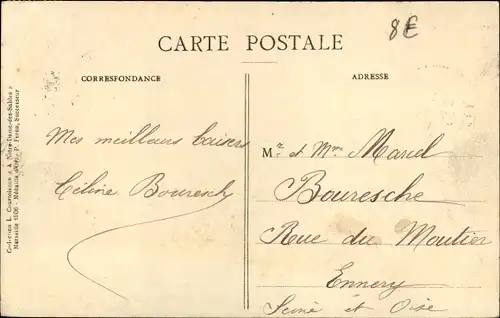 8€
CARTE POSTALE
CORRESPONDANCE
ADRESSE
Mes meilleurs baisers
Céline Bouresche
Mr et Mme Marcel
Bouresche
Rue du Moutier
Ennery
Seine et Oise
Collection L. « A Notre-Dame-des-Sables »
Marseille 1906 - Médaille d'Or - P. Successeur